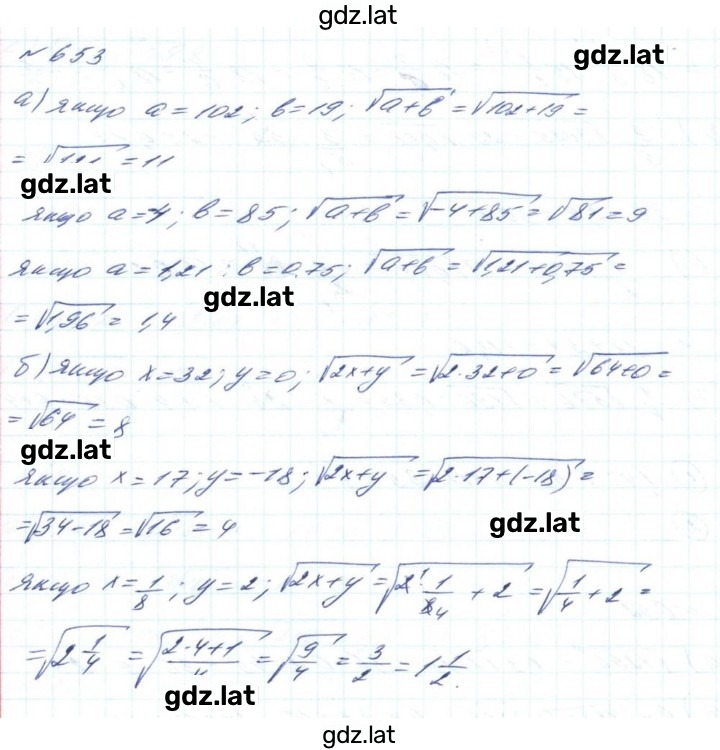 gdz.lat
№ 653
gdz.lat
а) якщо a = 102; в = 19; √(a+в) = √(102+19) =
= √121 = 11
gdz.lat
якщо a = -4; в = 85; √(a+в) = √(-4+85) = √81 = 9
якщо a = 1,21; в = 0,75; √(a+в) = √(1,21+0,75) =
gdz.lat
= √1,96 = 1,4
б) якщо x = 32; y = 0; √(2x+y) = √(2·32+0) = √(64+0) =
= √64 = 8
gdz.lat
якщо x = 17; y = -18; √(2x+y) = √(2·17+(-18)) =
= √(34-18) = √16 = 4
gdz.lat
якщо x = 1/8; y = 2; √(2x+y) = √(2¹·1/8₄ + 2) = √(1/4 + 2) =
= √(2 1/4) = √((2·4+1)/4) = √(9/4) = 3/2 = 1 1/2.
gdz.lat
gdz.lat